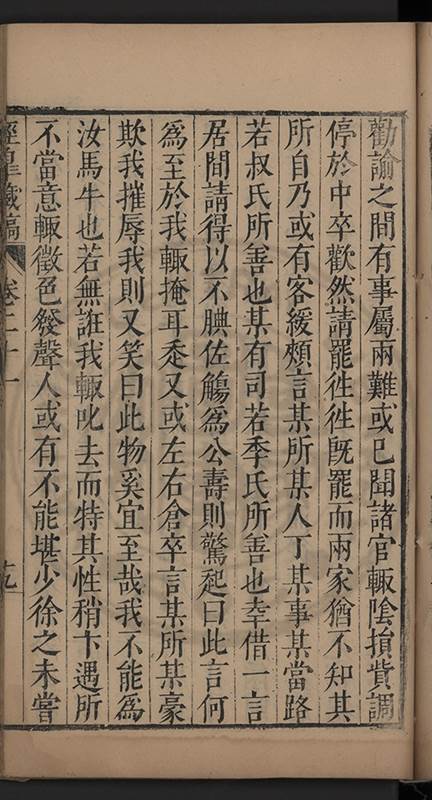 勸諭之間有事屬兩難或巳聞諸官輙陰損貲調
停於中卒歡然請罷徃徃既罷而兩家猶不知其
所自乃或有客緩頰言某所某人丁某事某當路
若叔氏所善也某有司若季氏所善也幸借一言
居間請得以不腆佐觴為公壽則驚起曰此言何
為至於我輙掩耳忝又或左右倉卒言某所某豪
欺我摧辱我則又笑曰此物奚宜至哉我不能為
汝馬牛也若無誑我輙叱去而特其性稍卞遇所
不當意輙徵色發聲人或有不能堪少徐之未嘗
涇臯藏稿 卷二十一 十九